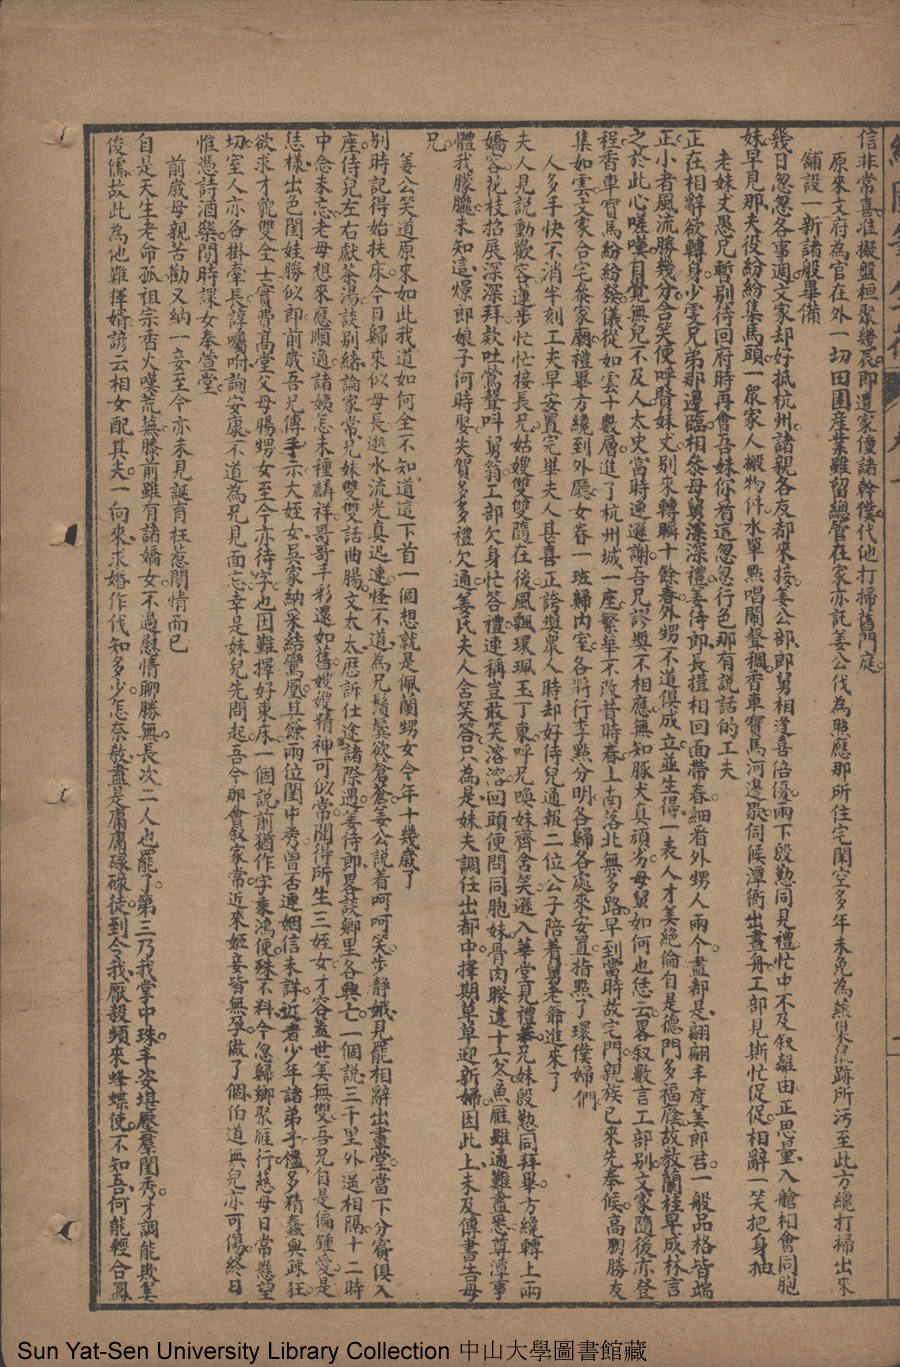 信非常喜准擬盤桓聚幾辰即遣家僮諸幹僕代他打掃舊門庭
原來文府為官在外一切田園産業雖留總管在家亦託姜公代為照應那所住宅閑空多年未免為燕巢鼠跡所汚至此方纔打掃出來
鋪設一新諸般畢備
幾日忽忽各事週文家却好抵杭州諸親各友都來接姜公部郎舅相逢喜倍優兩下殷懃同見禮忙中不及叙離由正思量入艙相會同胞
妹早見那夫役紛紛集馬頭一眾家人搬物件水單點唱鬧聲稠香車寶馬河邊歇伺候潭衙出畫舟工部見斯忙促促相辭一笑把身抽
老妹丈愚兄暫别待回府時再會吾妹你看這忽忽行色那有説話的工夫
正在相辭欲轉身少雯兄弟那邊臨相叅母舅深深禮姜侍郎長揖相回面帶春細看外甥人兩个盡都是翩翩丰度美郎君一般品格皆端
正小者風流勝幾分含笑便呼賢妹丈别來轉瞬十餘春外甥不道俱成立並生得一表人才美絶倫自是德門多福廕故教蘭桂早成林言
之於此心嗟嘆自覺無兒不及人太史當時連遜謝吾兄謬奬不相應無知豚犬真頑劣母舅如何也恁云畧叙數言工部别文家隨後亦登
程香車寶馬紛紛發儀從如雲十數層進了杭州城一座繁華不改昔時春上南落北無多路早到當時故宅門親族已來先奉候高朋勝友
集如雲文家合宅叅家廟禮畢方纔到外廳女眷一班歸内室各將行李點分明各歸各處來安置指點了環僕婦們
人多手快不消半刻工夫早安置完畢夫人甚喜正誇奬眾人時却好侍兒通報二位公子陪着舅老爺進來了
夫人見説動歡容蓮步忙忙接長兄姑嫂雙雙隨在後風飄環珮玉丁東呼兄喚妹齊含笑遜入華堂見禮恭兄妹殷懃同拜畢方纔轉上兩
嬌容花枝招展深深拜欵吐鶯聲呌舅翁工部欠身忙答禮連稱豈敢笑溶溶回頭便問同胞妹骨肉暌違十二冬魚雁雖通難盡悉尊潭事
體我朦朧未知這爆即娘子何時娶失賀多多禮欠通姜氏夫人含笑答只為是妹夫調任出都中擇期草草迎新婦因此上未及傳書告母
兄
姜公笑道原來如此我道如何全不知道這下首一個想就是佩蘭甥女今年十幾歲了
别時記得始扶床今日歸來似母長逝水流光真迅速怪不道為兄鬚鬢欲蒼蒼姜公説着呵呵笑步靜娥見罷相辭出畫堂當下分賓俱入
座侍兒左右獻茶湯談别緒論家常兄妹雙雙話曲腸文太太歴訴仕途諸際遇姜侍郎畧談鄉里各興亡一個説三千里外遥相隔十二時
中念未忘老母想來應順適諸姨怎未種麟祥哥哥手彩還如舊嫂嫂精神可似常聞得所生三姪女才容蓋世美無雙吾兄自是偏鍾愛是
恁樣出色閨娃勝似郎前歲吾兄傳手示大姪女吴家納采結鸞凰其餘兩位閨中秀曾否連姻信未詳近者少年諸弟子儘多精蠢與疎狂
欲求才貌雙全士實費高堂父母腸甥女至今亦待字也因難擇好東床一個説前猶作字乘鴻便殊不料今忽歸鄉聚雁行慈母日常懸望
切室人亦各掛牽長諄囑咐詢安康不道為兄見面忘幸是妹兒先問起吾今那會叙家常近來姬妾皆無孕做了個伯道無兒亦可傷終日
惟憑詩酒樂閒時課女奉萱堂
前歲母親苦勸又納一妾至今亦未見誕育枉惹閒情而已
自是天生老命孤祖宗香火嘆荒蕪膝前雖有諸嬌女不過慰情聊勝無長次二人也罷了第三乃我掌中珠丰姿堪壓羣閨秀才調能欺美
俊儒故此為他難擇婿諺云相女配其夫一向來求婚作伐知多少怎奈教盡是庸庸碌碌徒到今我厭殺頻來蜂蝶使不知吾何能輕合鳳
Sun Yat-Sen University Library Collection 中山大學圖書館藏